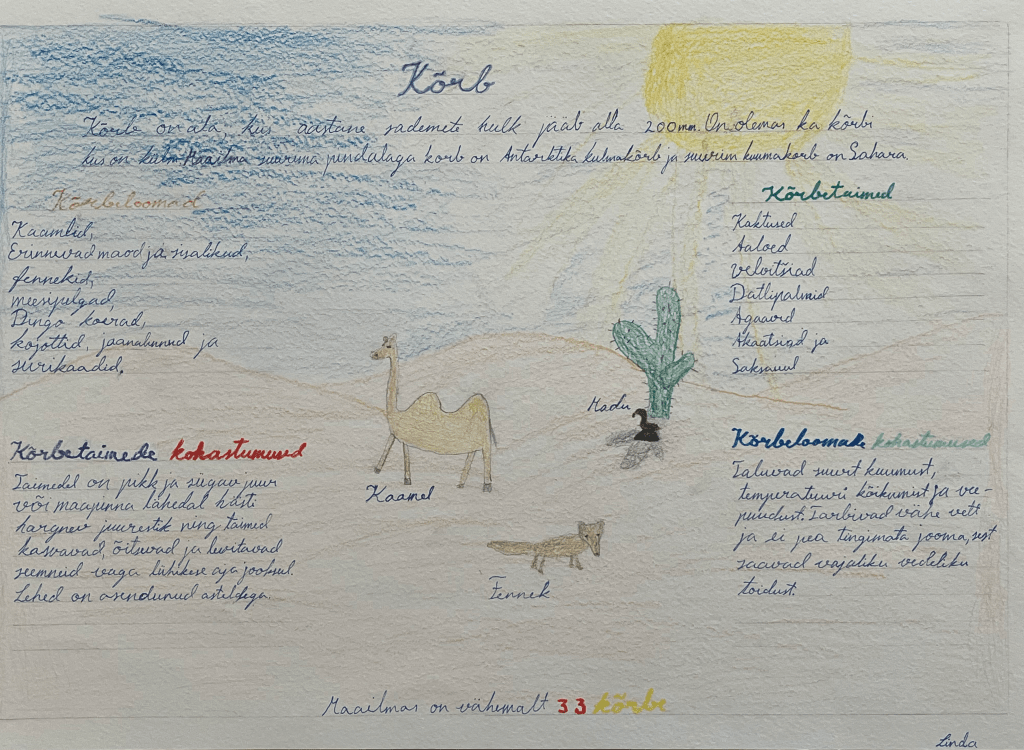 Kõrb
Kõrb on ala, kus aastane sademete hulk jääb alla 200mm. On olemas ka kõrbi
kus on külm. Maailma suurima pindalaga korb on Antarktika kulmakõrb ja suurim kuumakorb on Sahara.
Kõrbeloomad
Kaamlid,
Erinnevad maod ja sisalikud,
fennekid,
meesipelgad,
Dingo koerad,
kojottid, jaanalinnud ja
surikaadid.
Kõrbetaimed
Kaktused
Aaloed
velvitsiad
Datlipalmid
Agaavid
Akaatsiad ja
Saksauul
Madu
Kaamel
Fennek
Kõrbetaimede kohastumused
Taimedel on pikk ja sügav juur
või maapinna lähedal hästi
hargnev juurestik ning taimed
kasvavad, õitsevad ja levitavad
seemneid vaga lühikese aja jooksul.
Lehed on asendunud asteldega.
Kõrbeloomade kohastumused
Taluvad suurt kuumust,
temperatuuri kõikumist ja vee-
puudust. Tarbivad vähe vett
ja ei pea tingimata jooma, sest
saavad vajaliku vedeliku
toidust.
Maailmas on vähemalt 33 kõrbe
Linda